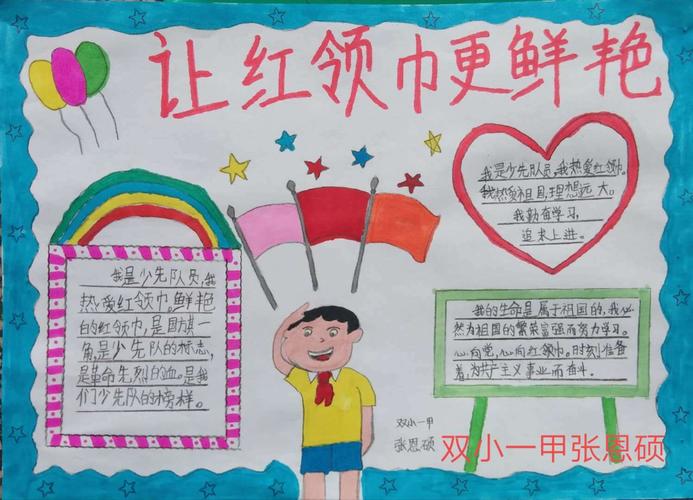 让红领巾更鲜艳
我是少先队员,我热爱红领巾。
我热爱祖国,理想远大。
我勤奋学习,
追求上进。
我是少先队员,我
热爱红领巾。鲜艳
的红领巾,是国旗一
角,是少先队的标志,
是革命先烈的血。是我
们少先队的榜样。
我的生命是属于祖国的,我必
然为祖国的繁荣富强而努力学习。
心向党,心向红领巾。时刻准备
着,为共产主义事业而奋斗。
双小一甲
张恩硕
双小一甲张恩硕